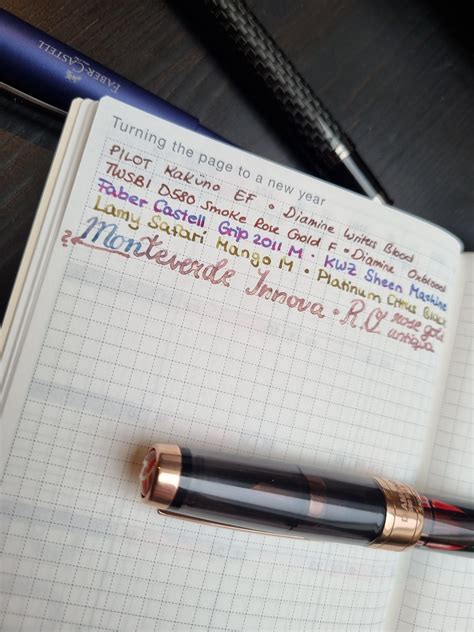 FABER-CASTELL
Turning the page to a new year
PILOT Kakuno EF • Diamine Writers Blood
TWSBI D580 Smoke Rose Gold F • Diamine Oxblood
Faber Castell Grip 2011 M • KWZ Sheen Machine
Lamy Safari Mango M • Platinum Citrus Black
Monteverde Innova • R.O rose gold
antiqua